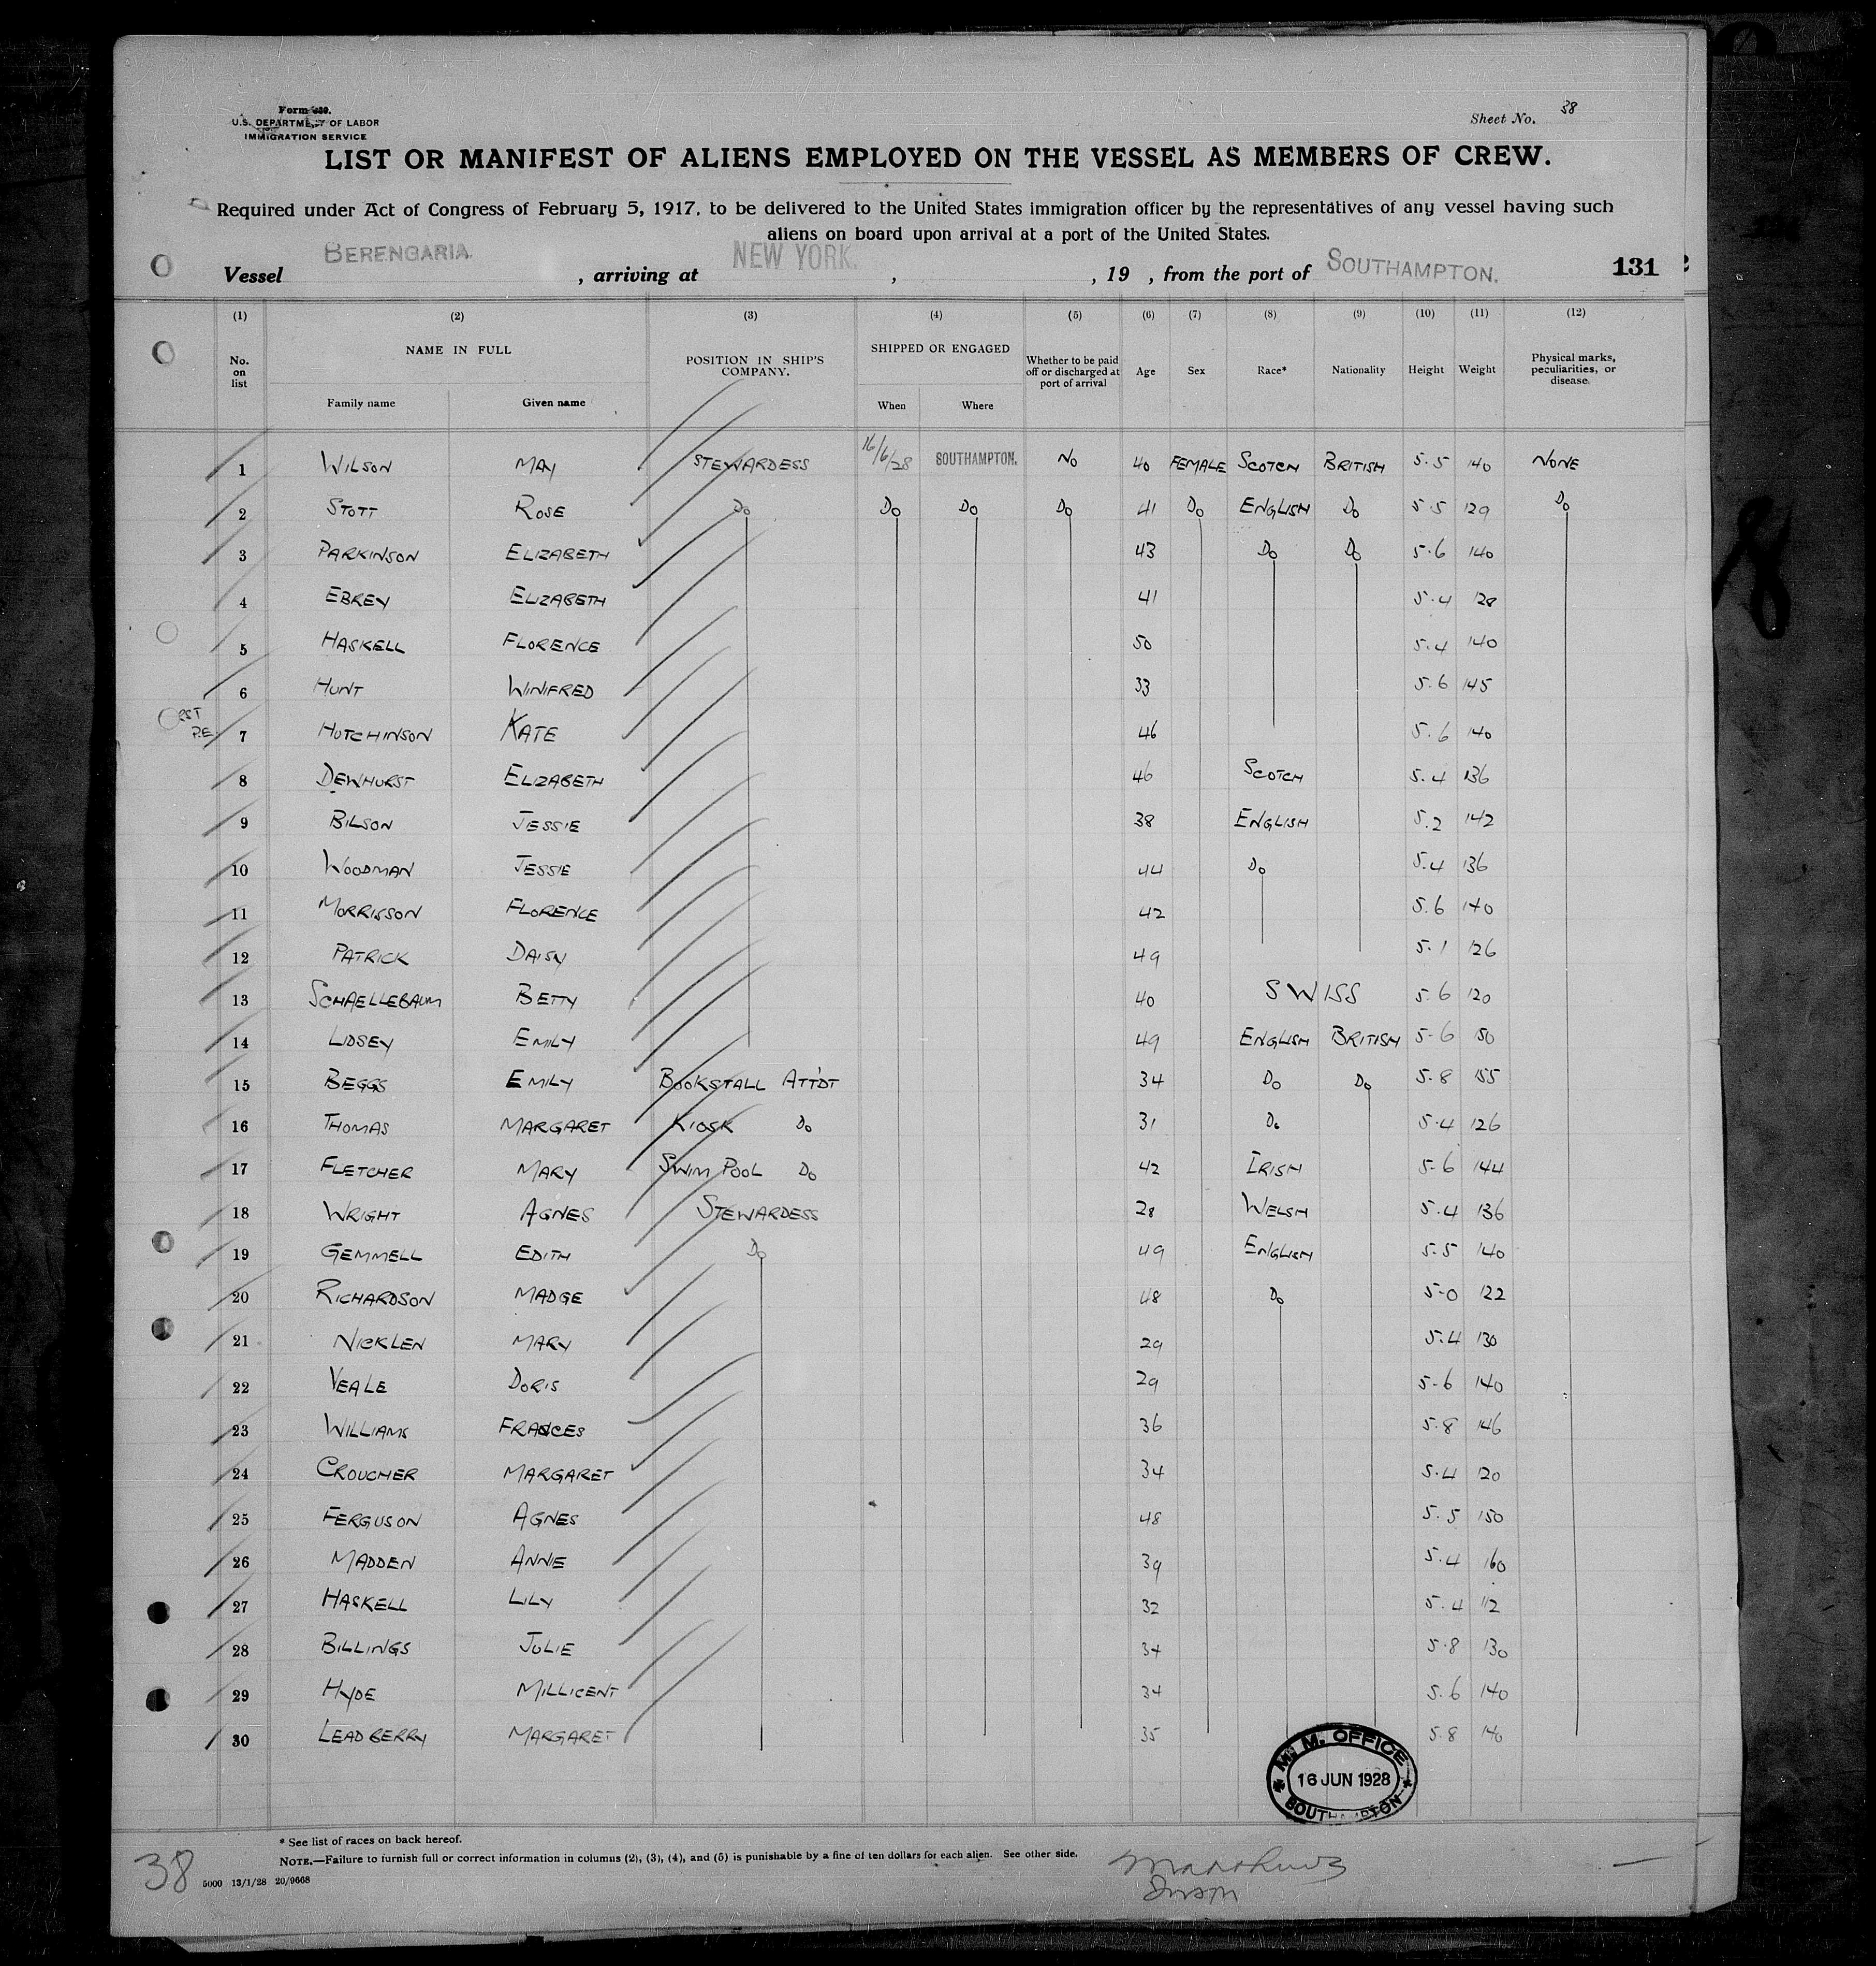 Form 689.
U.S. DEPARTMENT OF LABOR
IMMIGRATION SERVICE
Sheet No. 38
LIST OR MANIFEST OF ALIENS EMPLOYED ON THE VESSEL AS MEMBERS OF CREW.
Required under Act of Congress of February 5, 1917, to be delivered to the United States immigration officer by the representatives of any vessel having such
aliens on board upon arrival at a port of the United States.
Vessel BERENGARIA. , arriving at NEW YORK. , , 19 , from the port of SOUTHAMPTON. 131
(1) (2) (3) (4) (5) (6) (7) (8) (9) (10) (11) (12)
No. on list NAME IN FULL Family name Given name POSITION IN SHIP'S COMPANY. SHIPPED OR ENGAGED When Where Whether to be paid off or discharged at port of arrival Age Sex Race* Nationality Height Weight Physical marks, peculiarities, or disease.
1 WILSON MAY STEWARDESS 16/6/28 SOUTHAMPTON. NO 40 FEMALE SCOTCH BRITISH 5.5 140 NONE
2 STOTT ROSE DO DO DO DO 41 DO ENGLISH DO 5.5 129 DO
3 PARKINSON ELIZABETH 43 DO DO 5.6 140
4 EBREY ELIZABETH 41 5.4 128
5 HASKELL FLORENCE 50 5.4 140
6 HUNT WINIFRED 33 5.6 145
P.E. 7 HUTCHINSON KATE 46 5.6 140
8 DEWHURST ELIZABETH 46 SCOTCH 5.4 136
9 BILSON JESSIE 38 ENGLISH 5.2 142
10 WOODMAN JESSIE 44 DO 5.4 136
11 MORRISSON FLORENCE 42 5.6 140
12 PATRICK DAISY 49 5.1 126
13 SCHAELLEBAUM BETTY 40 SWISS 5.6 120
14 LIDSEY EMILY 49 ENGLISH BRITISH 5-6 150
15 BEGGS EMILY BOOKSTALL ATT'DT 34 DO DO 5.8 155
16 THOMAS MARGARET KIOSK DO 31 DO 5.4 126
17 FLETCHER MARY SWIM POOL DO 42 IRISH 5-6 144
18 WRIGHT AGNES STEWARDESS 28 WELSH 5.4 136
19 GEMMELL EDITH DO 49 ENGLISH 5.5 140
20 RICHARDSON MADGE 48 DO 5-0 122
21 NICKLEN MARY 29 5.4 130
22 VEALE DORIS 29 5-6 140
23 WILLIAMS FRANCES 36 5.8 146
24 CROUCHER MARGARET 34 5.4 120
25 FERGUSON AGNES 48 5.5 150
26 MADDEN ANNIE 39 5.4 160
27 HASKELL LILY 32 5.4 112
28 BILLINGS JULIE 34 5.8 130
29 HYDE MILLICENT 34 5.6 140
30 LEADBERRY MARGARET 35 5.8 140
M. M. OFFICE
16 JUN 1928
SOUTHAMPTON
* See list of races on back hereof.
NOTE.—Failure to furnish full or correct information in columns (2), (3), (4), and (5) is punishable by a fine of ten dollars for each alien. See other side.
38 5000 13/1/28 20/9668